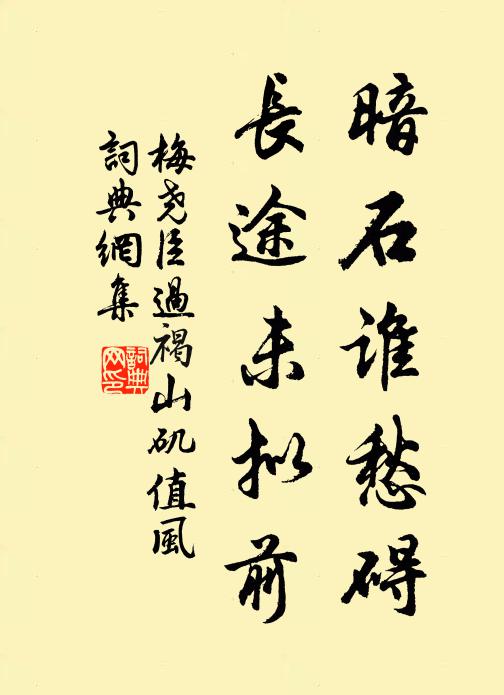 暗石谁愁碍
長途未拟前
梅尧臣過褐山矶值風
詞典網集
詞典
网印